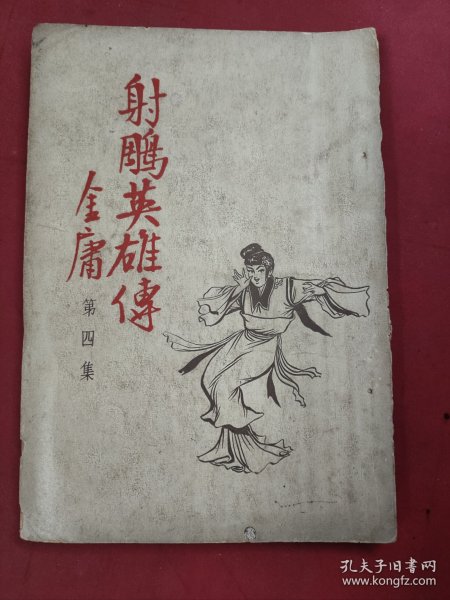 射鵰英雄傳
金庸
第四集
孔夫子旧书网
www.kongfz.com